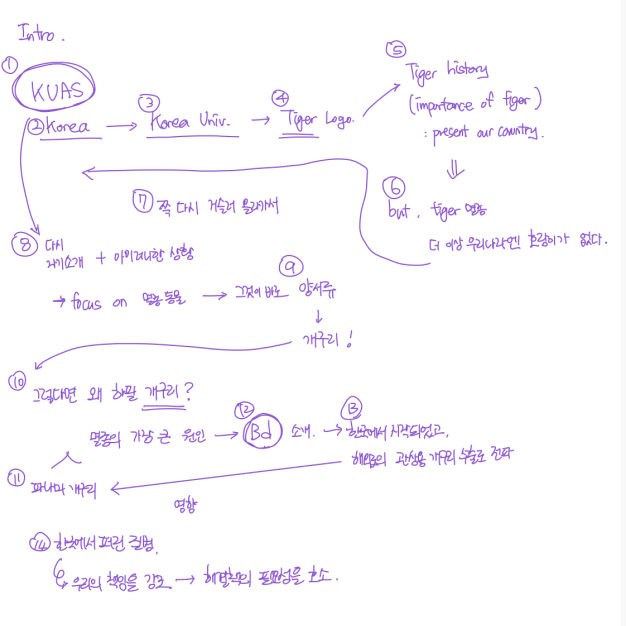 Intro.
① KUAS
② Korea → ③ Korea Univ. → ④ Tiger Logo.
⑤ Tiger history
(importance of tiger)
: present our country.
⑥ but, tiger 멸종
더 이상 우리나라엔 호랑이가 없다.
⑦ 쭉 다시 거슬러 올라가서
⑧ 다시
자기소개 + 아이러니한 상황
→ focus on 멸종동물 → ⑨ 그것이 바로 양서류
↓
개구리!
⑩ 그렇다면 왜 하필 개구리?
멸종의 가장 큰 원인 → ⑫ Bd 소개. → ⑬ 한국에서 시작되었고,
관상용 개구리 수출로 전파
⑪ 파나마 개구리
영향
⑭ 한국에서 퍼진 질병.
우리의 책임을 강조 → 해결책의 필요성을 호소.